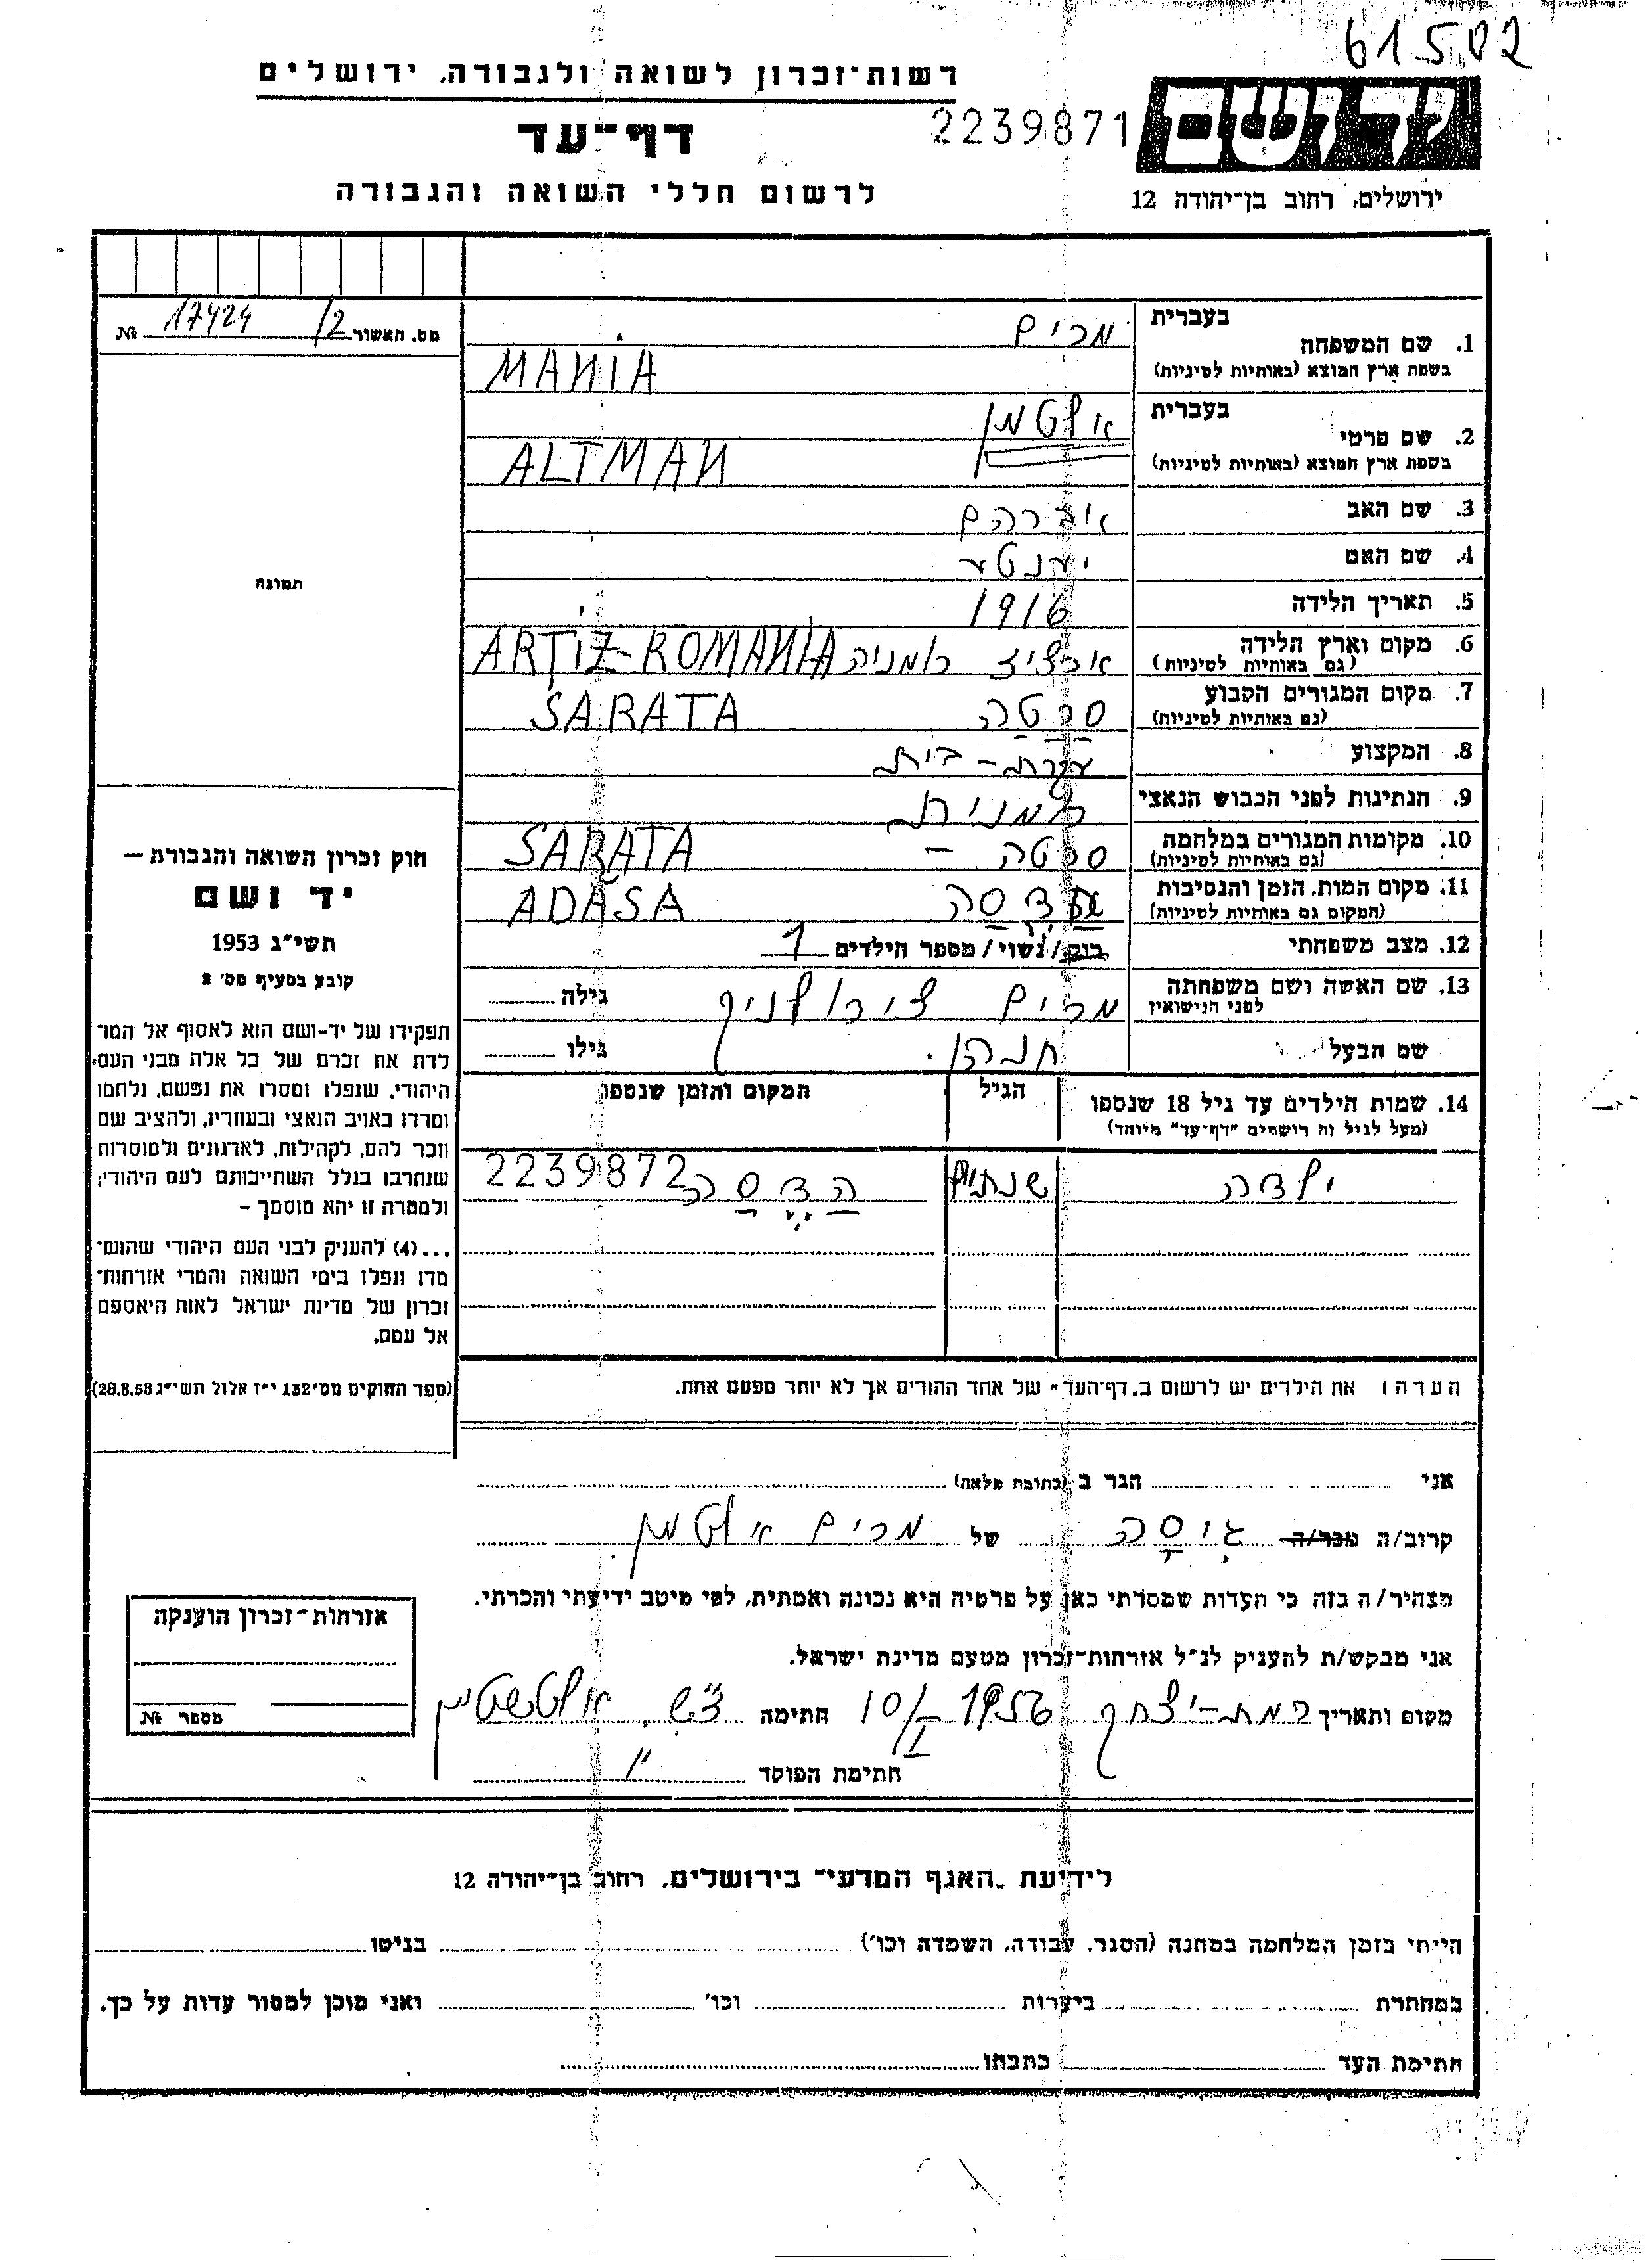 61502
רשות־זכרון לשואה ולגבורה, ירושלים
דף־עד
2239871
יד ושם
לרשום חללי השואה והגבורה
ירושלים, רחוב בן־יהודה 12
מס. האשור 12/ 17424 №
בעברית
1. שם המשפחה
מרים
בשפת ארץ המוצא (באותיות לטיניות)
MANIA
בעברית
2. שם פרטי
אלטמן
בשפת ארץ המוצא (באותיות לטיניות)
ALTMAN
3. שם האב אברהם
4. שם האם יענטע
5. תאריך הלידה 1916
6. מקום וארץ הלידה
(גם באותיות לטיניות) ארציז רומניה ARTIZ-ROMANIA
7. מקום המגורים הקבוע
(גם באותיות לטיניות) סרטה SARATA
8. המקצוע עקרת-בית
9. הנתינות לפני הכבוש הנאצי רומנית
10. מקומות המגורים במלחמה
(גם באותיות לטיניות) סרטה – SARATA
11. מקום המות, הזמן והנסיבות
(המקום גם באותיות לטיניות) אדסה ADASA
12. מצב משפחתי רווק/נשוי/מספר הילדים 1
13. שם האשה ושם משפחתה
לפני הנישואין מרים גילה
שם הבעל גילו
14. שמות הילדים עד גיל 18 שנספו
(מעל לגיל זה רושמים "דף־עד" מיוחד)
הגיל
המקום והזמן שנספו
ילדה שנתיים הדסה 2239872
הערה: את הילדים יש לרשום ב„דף־העד" של אחד ההורים אך לא יותר מפעם אחת.
תמונה
חוק זכרון השואה והגבורה –
יד ושם
תשי"ג 1953
קובע בסעיף מס' 2
תפקידו של יד-ושם הוא לאסוף אל המו־
לדת את זכרם של כל אלה מבני העם
היהודי, שנפלו ומסרו את נפשם, נלחמו
ומרדו באויב הנאצי ובעוזריו, ולהציב שם
וזכר להם, לקהילות, לארגונים ולמוסדות
שנחרבו בגלל השתייכותם לעם היהודי;
ולמטרה זו יהא מוסמך –
...(4) להעניק לבני העם היהודי שהוש־
מדו ונפלו בימי השואה והמרי אזרחות־
זכרון של מדינת ישראל לאות היאספם
אל עמם.
(ספר החוקים מס' 132 י"ז אלול תשי"ג 28.8.53)
אני הגר ב (כתובת מלאה)
קרוב/ה מכר/ה גיסה של מרים אלטמן
מצהיר/ה בזה כי העדות שמסרתי כאן על פרטיה היא נכונה ואמתית, לפי מיטב ידיעתי והכרתי.
אני מבקש/ת להעניק לנ"ל אזרחות־זכרון מטעם מדינת ישראל.
מקום ותאריך רמת-יצחק 10/I 1956 חתימה
חתימת הפוקד
אזרחות־זכרון הוענקה
מספר №
לידיעת „האגף המדעי" בירושלים, רחוב בן־יהודה 12
הייתי בזמן המלחמה במחנה (הסגר, עבודה, השמדה וכו') בגיטו
במחתרת ביערות וכו' ואני מוכן למסור עדות על כך.
חתימת העד כתבתו